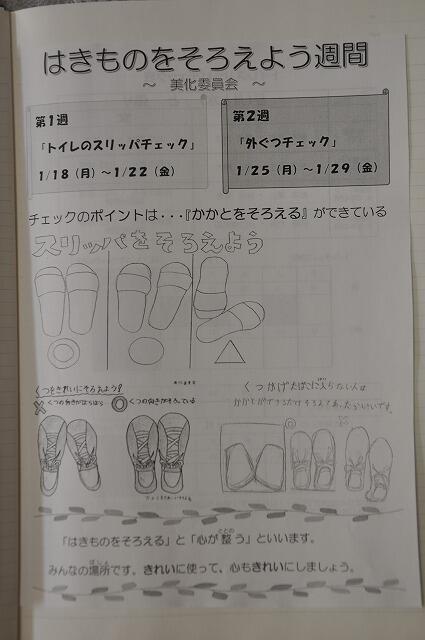 はきものをそろえよう週間
～ 美化委員会 ～
第1週
「トイレのスリッパチェック」
1/18（月）～1/22（金）
第2週
「外ぐつチェック」
1/25（月）～1/29（金）
チェックのポイントは・・・『かかとをそろえる』ができている
スリッパをそろえよう
くつをきれいにそろえよう!
くつの向きがばらばら
くつの向きがそろっている
くつがげたばこに入らない人は
「はきものをそろえる」と「心が整う」といいます。
みんなの場所です。きれいに使って、心もきれいにしましょう。